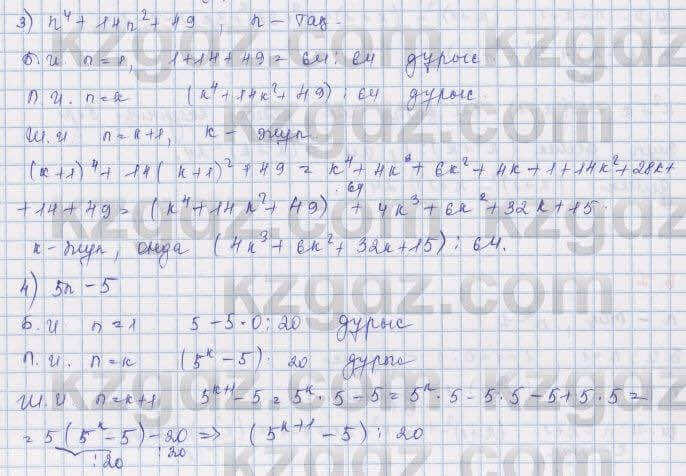 3) n⁴ + 14n² + 49 , n – тақ.
Б.И. n=1, 1+14+49 = 64 ⋮ 64 дұрыс
П.И. n=k (k⁴ + 14k² + 49) ⋮ 64 дұрыс
Ш.И n=k+1, k – жұп.
(k+1)⁴ + 14(k+1)² + 49 = k⁴ + 4k³ + 6k² + 4k + 1 + 14k² + 28k +
+ 14 + 49 = (k⁴ + 14k² + 49) ⋮ 64 + 4k³ + 6k² + 32k + 15.
k – жұп, онда (4k³ + 6k² + 32k + 15) ⋮ 64.
4) 5n – 5
Б.И n=1 5 – 5 = 0 ⋮ 20 дұрыс
П.И. n=k (5ᵏ – 5) ⋮ 20 дұрыс
Ш.И n=k+1 5ᵏ⁺¹ – 5 = 5ᵏ · 5 – 5 = 5ᵏ · 5 – 5 · 5 – 5 + 5 · 5 =
= 5(5ᵏ – 5) – 20 => (5ᵏ⁺¹ – 5) ⋮ 20
⋮ 20 ⋮ 20
kzgdz.com